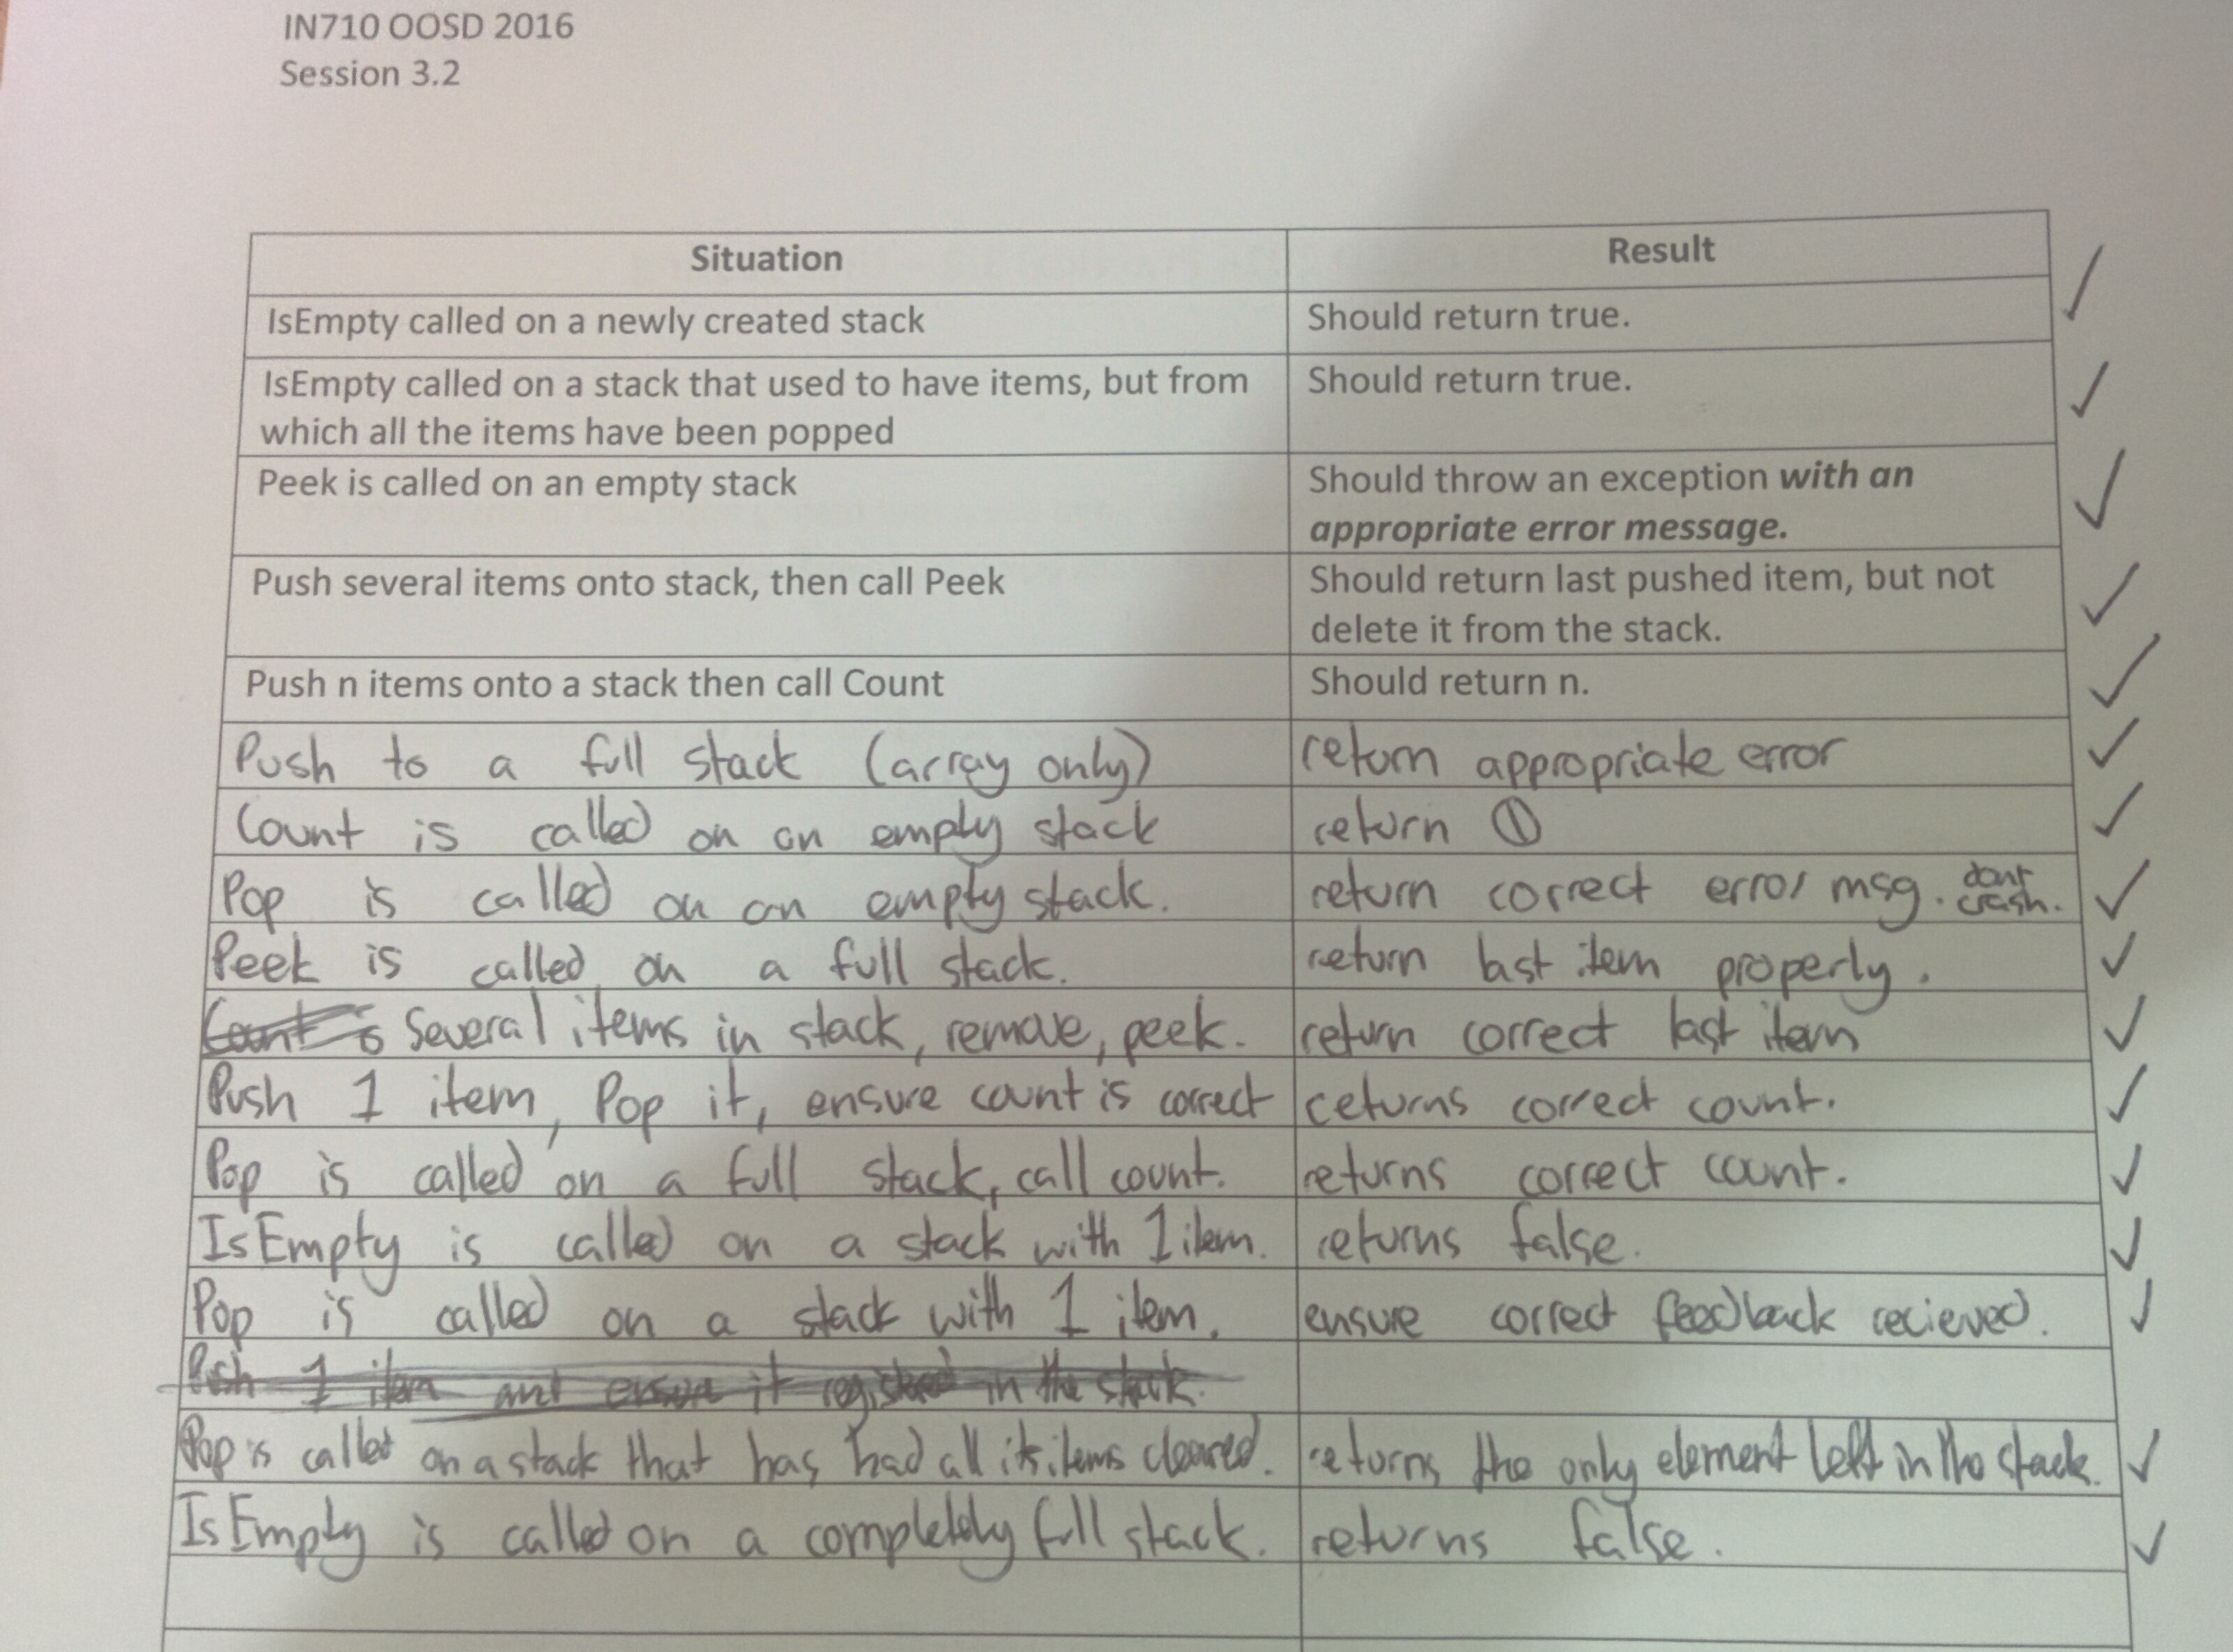 IN710 OOSD 2016
Session 3.2
Situation Result
IsEmpty called on a newly created stack Should return true.
IsEmpty called on a stack that used to have items, but from Should return true.
which all the items have been popped
Peek is called on an empty stack Should throw an exception with an
appropriate error message.
Push several items onto stack, then call Peek Should return last pushed item, but not
delete it from the stack.
Push n items onto a stack then call Count Should return n.
Push to a full stack (array only) return appropriate error
Count is called on an empty stack return
Pop is called on an empty stack. return correct error msg. dont crash.
Peek is called on a full stack. return last item properly.
Count is Several items in stack, remove, peek. return correct last item
Push 1 item, Pop it, ensure count is correct returns correct count.
Pop is called on a full stack, call count. returns correct count.
IsEmpty is called on a stack with 1 item. returns false.
Pop is called on a stack with 1 item. ensure correct feedback recieved.
Push 1 item and ensure it registered in the stack.
Pop is called on a stack that has had all its items cleared. returns the only element left in the stack.
IsEmpty is called on a completely full stack. returns false.